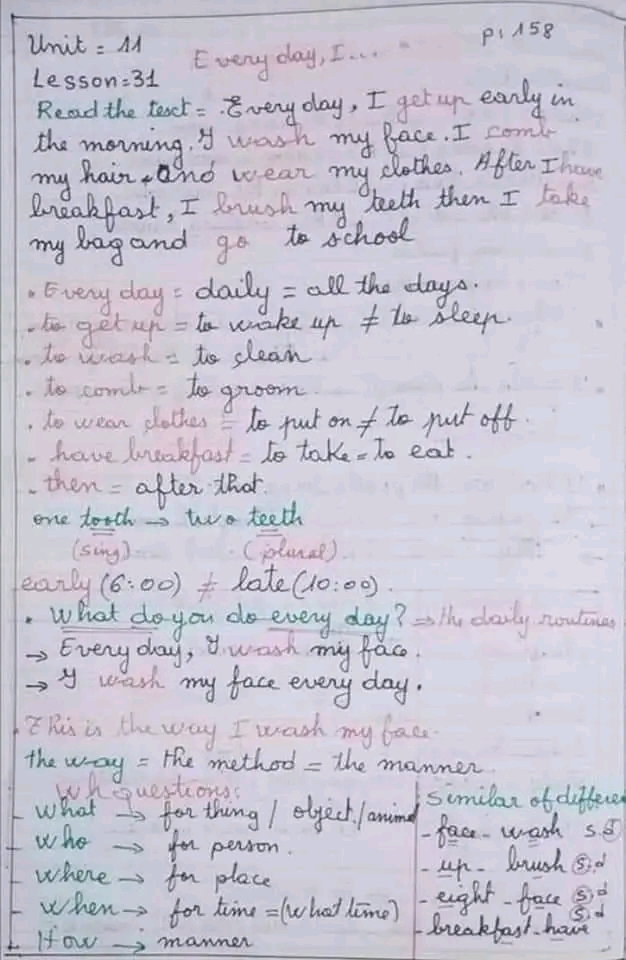 Unit = 11
Every day, I...
p: 158
Lesson=31
Read the text = Every day, I get up early in
the morning. I wash my face. I comb
my hair. and wear my clothes. After I have
breakfast, I brush my teeth then I take
my bag and go to school
. Every day = daily = all the days.
. to get up = to wake up ≠ to sleep.
. to wash = to clean
. to comb = to groom.
. to wear clothes = to put on ≠ to put off.
- have breakfast = to take = to eat.
. then = after that.
one tooth → two teeth
(sing) (plural)
early (6:00) ≠ late (10:00).
. What do you do every day? ⇒ the daily routines
→ Every day, I wash my face.
→ I wash my face every day.
. This is the way I wash my face.
the way = the method = the manner
Wh questions:
- What → for thing / object / animal
- Who → for person.
- where → for place
- When → for time = (what time)
- How → manner
Similar of differen
- face - wash s d
- up - brush s d
- eight - face s d
- breakfast - have s d